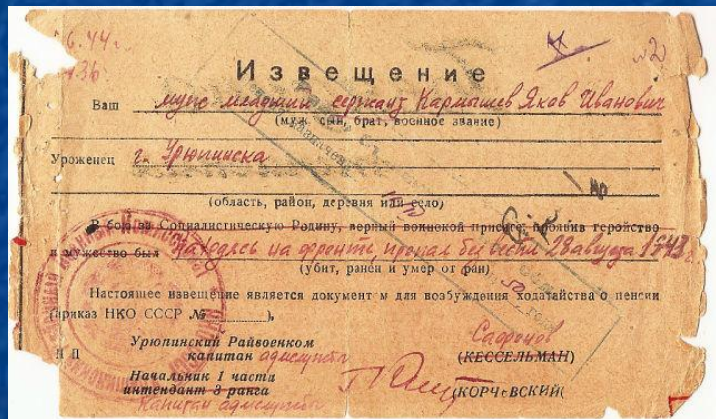 6.44 г.
№2
Извещение
Ваш муж младший сержант Кармышев Яков Иванович
(муж, сын, брат, военное звание)
Уроженец г. Урюпинска
(область, район, деревня или село)
В бою за Социалистическую Родину, верный воинской присяге, проявив геройство
и мужество был находясь на фронте, пропал без вести 28 августа 1943 г.
(убит, ранен и умер от ран)
Настоящее извещение является документ м для возбуждения ходатайства о пенсии
(приказ НКО СССР № ),
Урюпинский Райвоенком
капитан адмслужбы
Сафронов
(КЕССЕЛЬМАН)
Начальник 1 части
интендант 3 ранга
Капитан адмслужбы
(КОРЧЕВСКИЙ(